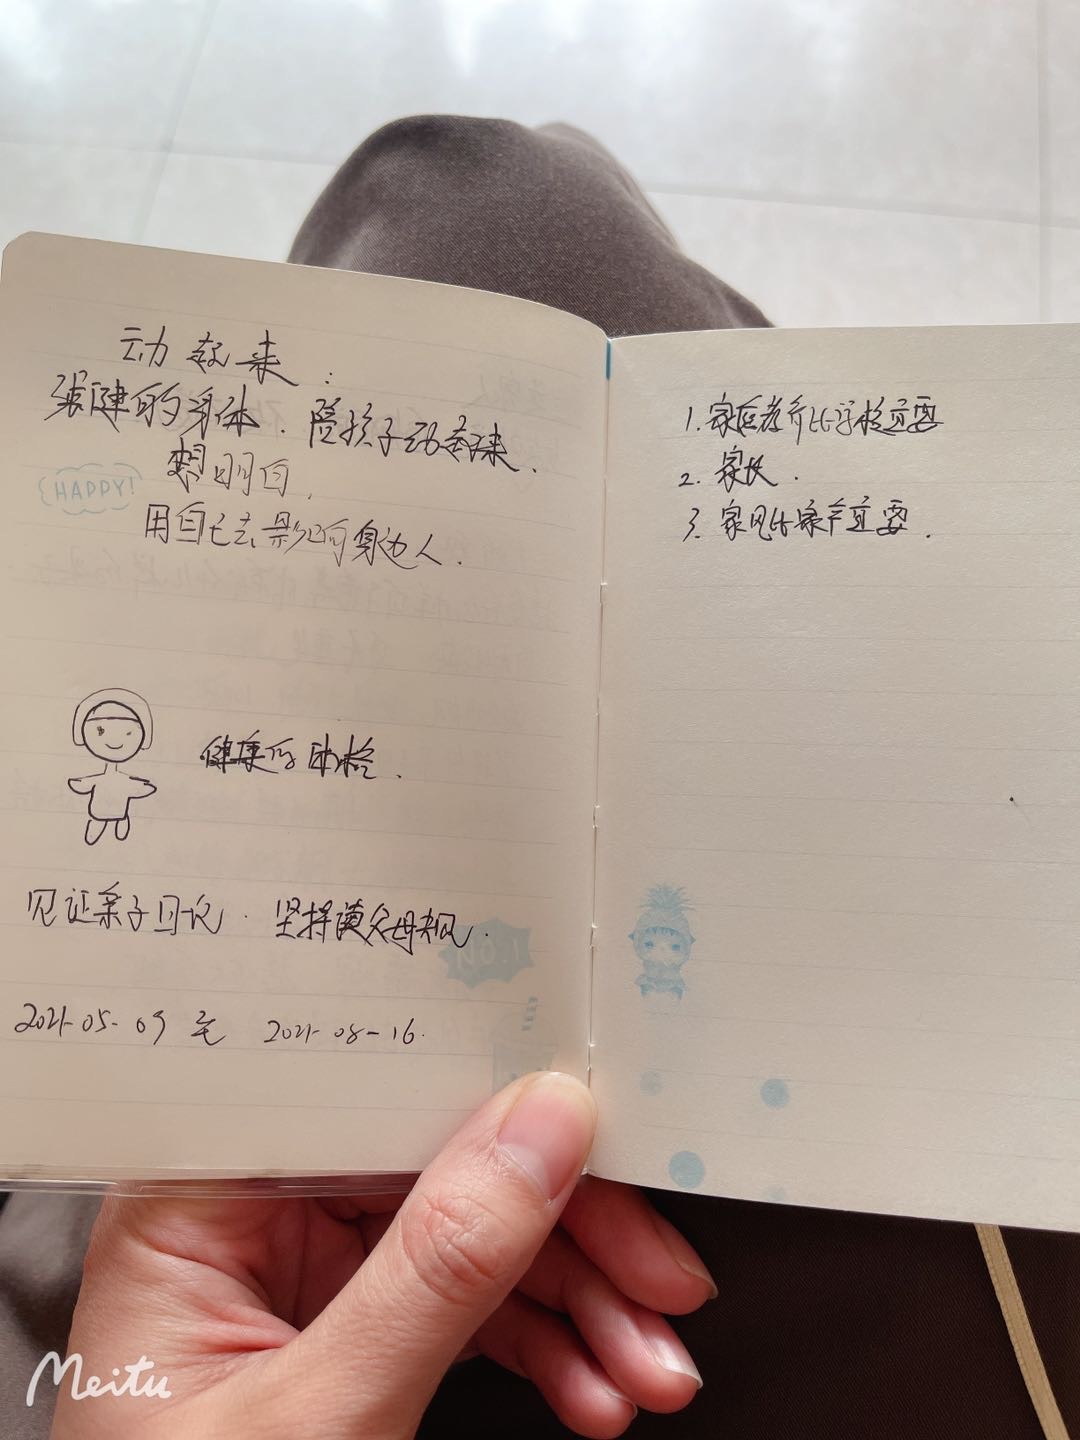 动起来：
强健的身体、陪孩子动起来、
想明白,
HAPPY!
用自己去影响身边人.
健康的体格、
见证亲子日记、坚持读父母规.
2021-05-09 至 2021-08-16.
1.家庭教育比学校重要
2.家长.
3.家风比家产重要.
Meitu